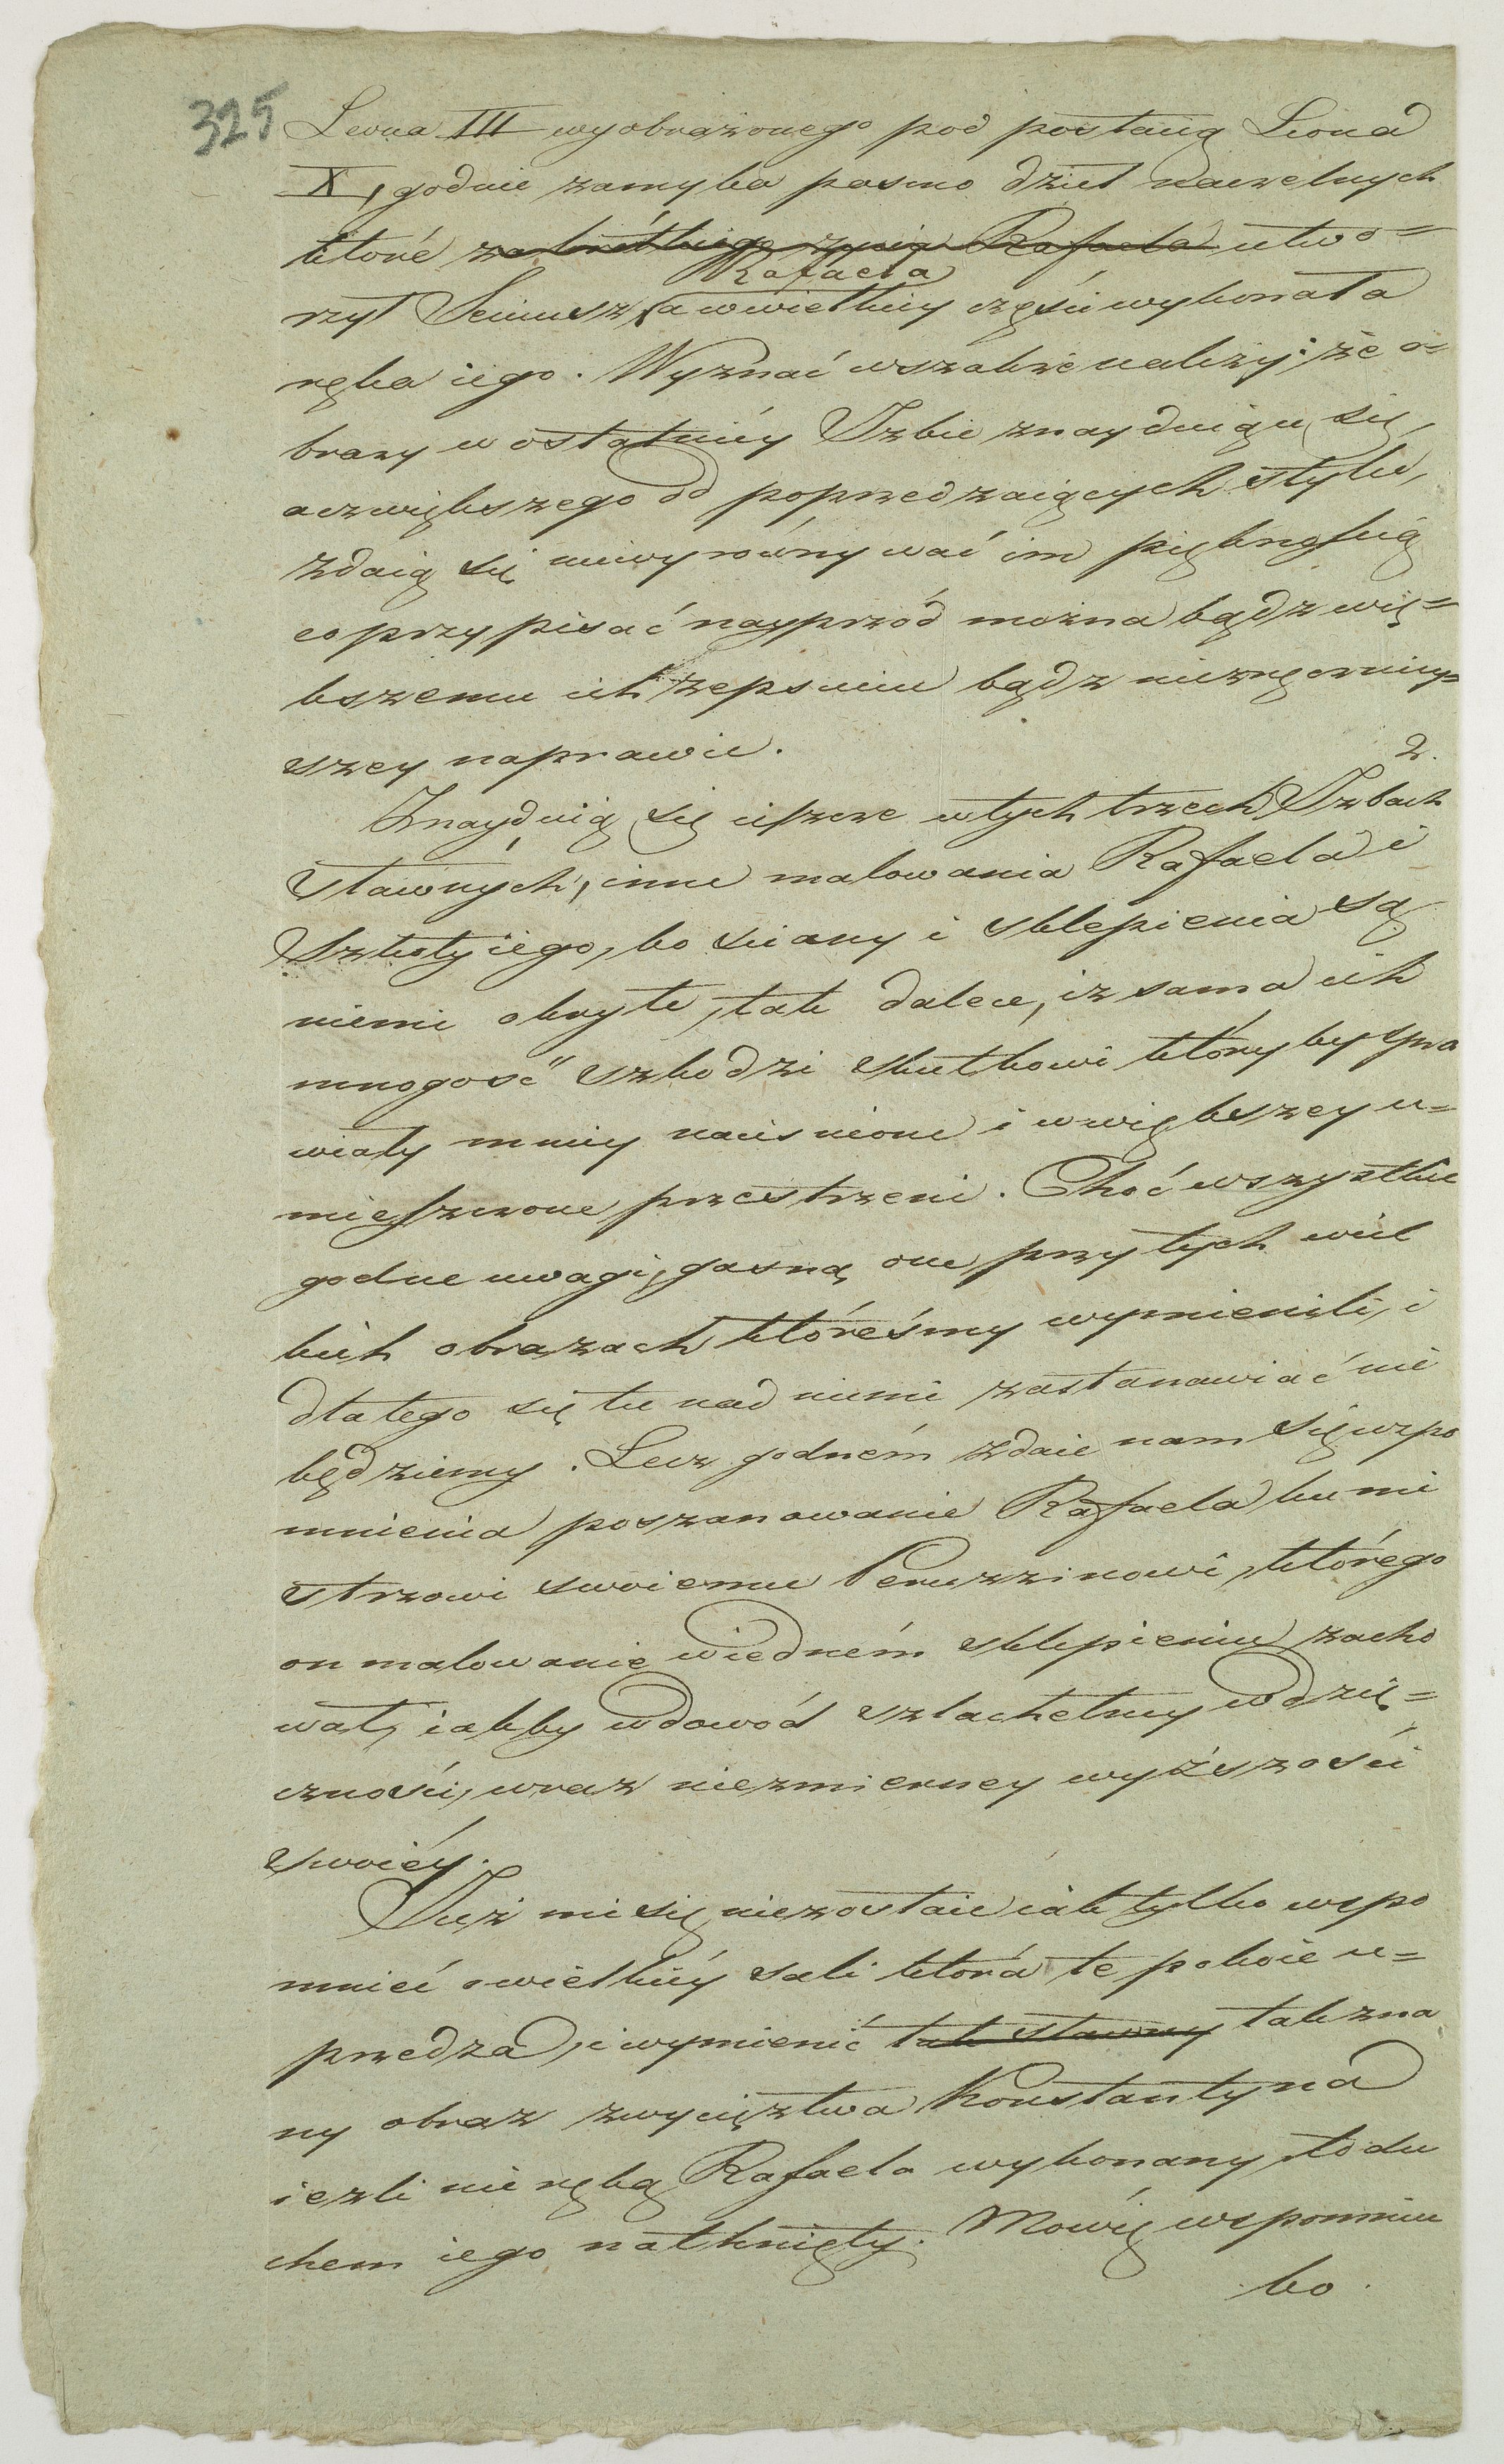 325
Leona III wyobrażonego pod postacią Leona
X, godnie zamyka pasmo dzieł naczelnych
które za krótkiego życia Rafaela utwo=
Rafaela
rzył Geniusz, a w wielkiey części wykonała
ręka iego. Wyznać wszakże należy: że o=
brazy w ostatniéy Izbie znayduiące się,
acz większego od poprzedzaiących stylu,
zdaią się niewyrównywać im pięknością
co przypisać nayprzód można bądz wię=
kszemu ich zepsuciu bądz niezręczniey=
szey naprawie.
2.
Znayduią się ieszcze w tych trzech Izbach
sławnych, inne malowania Rafaela i
Szkoły iego, bo sciany i sklepienia są
niemi okryte, tak dalece, iz sama ich
mnogość szkodzi skutkowi któryby spra
wiały mniey naciśnione i w większey u=
mieszczone przestrzeni. Choć wszystkie
godne uwagi, gasną one przy tych wiel
kich obrazach któreśmy wymienili, i
dla tego się tu nad niemi zastanawiać nie
będziemy. Lecz godném zdaie nam się wspo
mnienia poszanowanie Rafaela ku mi
strzowi swoiemu Peruzzinowi, którego
on malowanie w iedném sklepieniu zacho
wał, iakby w dowód szlachetney wdzię=
czności, wraz niezmierney wyższości
swoiéy.
Już mi się niezostaie iak tylko wspo
mnieć o wielkiéy sali która te pokoie u=
przedza, i wymienić tak sławny tak zna
ny obraz zwycięztwa Konstantyna
iezli nie ręką Rafaela wykonany, to du
chem iego natknięty. Mówię wspomnieć
bo